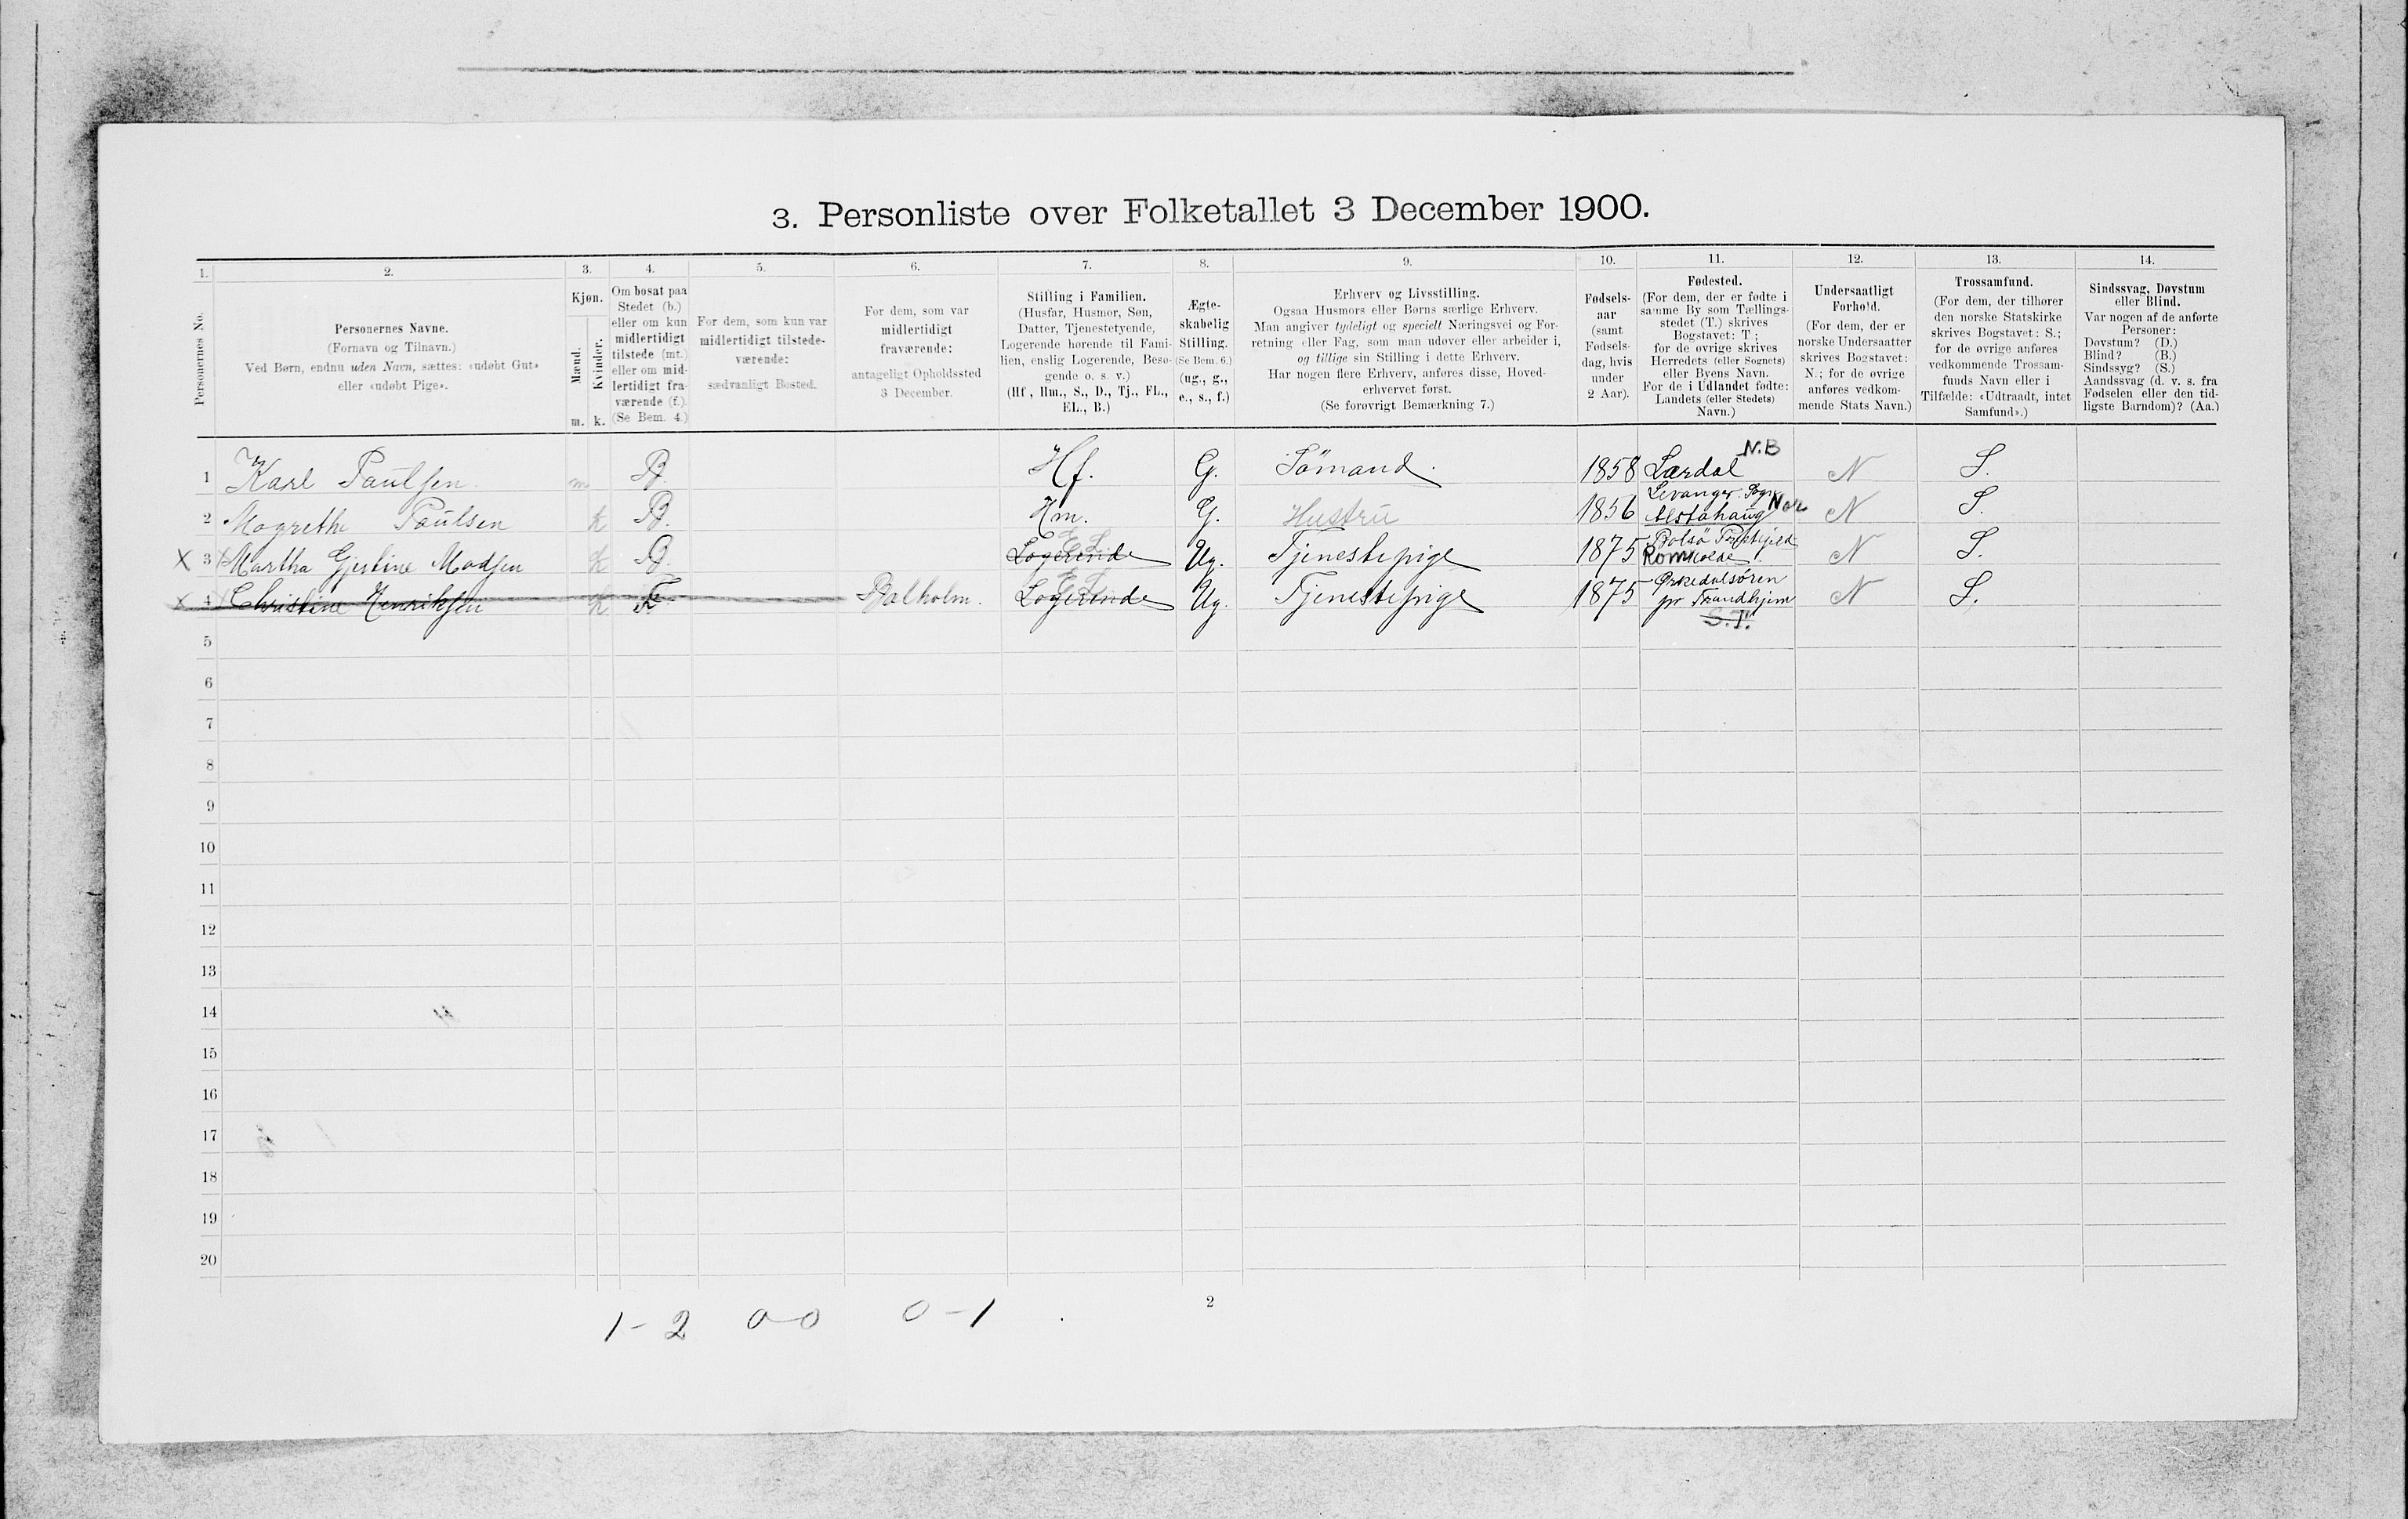 3. Personliste over Folketallet 3 December 1900.
1. 2. 3. 4. 5. 6. 7. 8. 9. 10. 11. 12. 13. 14.
Personernes No.
Personernes Navne.
(Fornavn og Tilnavn.)
Ved Børn, endnu uden Navn, sættes: «udøbt Gut»
eller «udøbt Pige».
Kjøn.
Mænd.
Kvinder.
m. k.
Om bosat paa
Stedet (b.)
eller om kun
midlertidigt
tilstede (mt.)
eller om mid-
lertidigt fra-
værende (f.).
(Se Bem. 4.)
For dem, som kun var
midlertidigt tilstede-
værende:
sædvanligt Bosted.
For dem, som var
midlertidigt
fraværende:
antageligt Opholdssted
3 December.
Stilling i Familien.
(Husfar, Husmor, Søn,
Datter, Tjenestetyende,
Logerende hørende til Fami-
lien, enslig Logerende, Besø-
gende o. s. v.)
(Hf., Hm., S., D., Tj., FL.,
EL., B.)
Ægte-
skabelig
Stilling.
(Se Bem. 6.)
(ug., g.,
e., s., f.)
Erhverv og Livsstilling.
Ogsaa Husmors eller Børns særlige Erhverv.
Man angiver tydeligt og specielt Næringsvei og For-
retning eller Fag, som man udøver eller arbeider i,
og tillige sin Stilling i dette Erhverv.
Har nogen flere Erhverv, anføres disse, Hoved-
erhvervet først.
(Se forøvrigt Bemærkning 7.)
Fødsels-
aar
(samt
Fødsels-
dag, hvis
under
2 Aar).
Fødested.
(For dem, der er fødte i
samme By som Tællings-
stedet (T.) skrives
Bogstavet: T.;
for de øvrige skrives
Herredets (eller Sognets)
eller Byens Navn.
For de i Udlandet fødte:
Landets (eller Stedets)
Navn.)
Undersaatligt
Forhold.
(For dem, der er
norske Undersaatter
skrives Bogstavet:
N.; for de øvrige
anføres vedkom-
mende Stats Navn.)
Trossamfund.
(For dem, der tilhører
den norske Statskirke
skrives Bogstavet: S.;
for de øvrige anføres
vedkommende Trossam-
funds Navn eller i
Tilfælde: «Udtraadt, intet
Samfund».)
Sindssvag, Døvstum
eller Blind.
Var nogen af de anførte
Personer:
Døvstum? (D.)
Blind? (B.)
Sindssyg? (S.)
Aandssvag (d. v. s. fra
Fødselen eller den tid-
ligste Barndom)? (Aa.)
N.B
1 Karl Paulsen. m B. Hf. G. Sömand. 1858 Lærdal N S.
Levanger Sogn
2 Magrethe Paulsen k B. Hm. G. Hustru 1856 Alstahaug N S.
E L
Bolsö
X 3 Martha Gjertine Madsen k B. Logerende Ug. Tjenestepige 1875 N S.
E L
Orkedalsören
X 4 Christine Henriksen k F Balholm. Logerende Ug. Tjenestepige 1875 pr Trondhjem N S.
S.T.
5
6
7
8
9
10
11
12
13
14
15
16
17
18
19
20
2
1-2 0-0 0-1